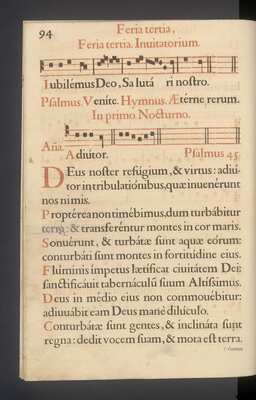 94
Feria tertia,
Feria tertia. Inuitatorium.
Iubilémus Deo, Salutá ri nostro.
Psalmus Veníte. Hymnus. Ætérne rerum.
In primo Nocturno.
Aña.
Adiútor. Psalmus 45.
DEus noster refúgium, & virtus: adiú-
tor in tribulatiónibus, quæ inuenérunt
nos nimis.
Proptérea non timébimus, dum turbábitur
terra: & transferéntur montes in cor maris.
Sonuérunt, & turbátæ sunt aquæ eórum:
conturbáti sunt montes in fortitúdine eius.
Flúminis ímpetus lætíficat ciuitátem Dei:
sanctificáuit tabernáculũ suum Altíssimus.
Deus in médio eius non commouébitur:
adiuuábit eam Deus manè dilúculo.
Conturbátæ sunt gentes, & inclináta sunt
regna: dedit vocem suam, & mota est terra.